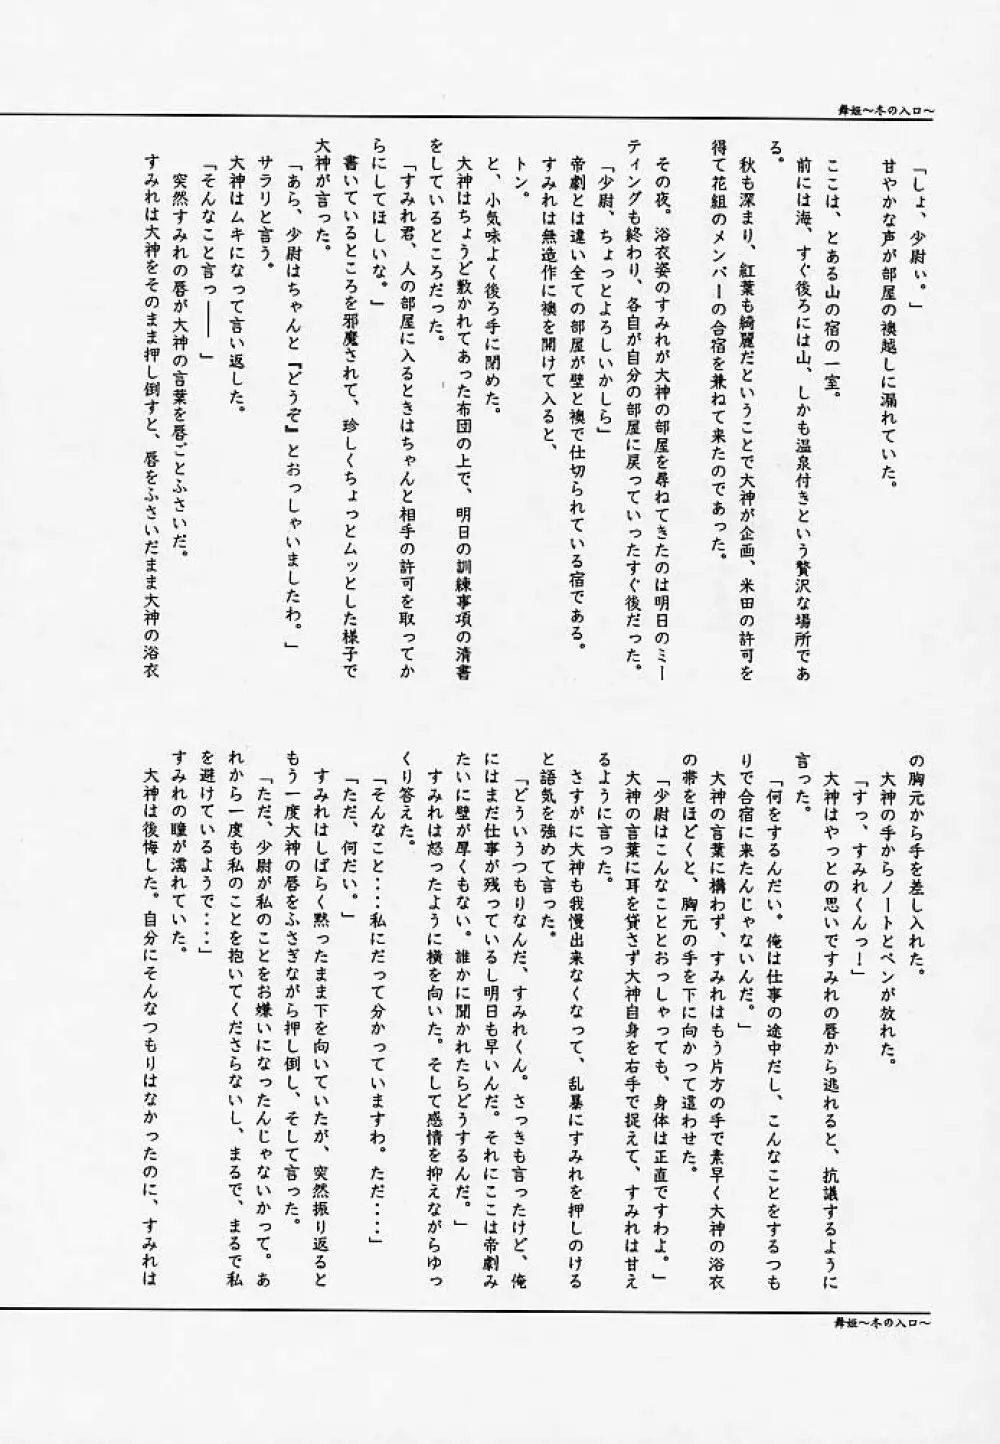 舞姫～冬の入口～
「しょ、少尉ぃ。」
甘やかな声が部屋の襖越しに漏れていた。
ここは、とある山の宿の一室。
前には海、すぐ後ろには山、しかも温泉付きという贅沢な場所であ
る。
秋も深まり、紅葉も綺麗だということで大神が企画、米田の許可を
得て花組のメンバーの合宿を兼ねて来たのであった。
その夜。浴衣姿のすみれが大神の部屋を尋ねてきたのは明日のミー
ティングも終わり、各自が自分の部屋に戻っていったすぐ後だった。
「少尉、ちょっとよろしいかしら」
帝劇とは違い全ての部屋が壁と襖で仕切られている宿である。
すみれは無造作に襖を開けて入ると、
トン。
と、小気味よく後ろ手に閉めた。
大神はちょうど敷かれてあった布団の上で、明日の訓練事項の清書
をしているところだった。
「すみれ君、人の部屋に入るときはちゃんと相手の許可を取ってか
らにしてほしいな。」
書いているところを邪魔されて、珍しくちょっとムッとした様子で
大神が言った。
「あら、少尉はちゃんと『どうぞ』とおっしゃいましたわ。」
サラリと言う。
大神はムキになって言い返した。
「そんなこと言っ――」
突然すみれの唇が大神の言葉を唇ごとふさいだ。
すみれは大神をそのまま押し倒すと、唇をふさいだまま大神の浴衣
の胸元から手を差し入れた。
大神の手からノートとペンが放れた。
「すっ、すみれくんっ！」
大神はやっとの思いですみれの唇から逃れると、抗議するように
言った。
「何をするんだい。俺は仕事の途中だし、こんなことをするつも
りで合宿に来たんじゃないんだ。」
大神の言葉に構わず、すみれはもう片方の手で素早く大神の浴衣
の帯をほどくと、胸元の手を下に向かって這わせた。
「少尉はこんなこととおっしゃっても、身体は正直ですわよ。」
大神の言葉に耳を貸さず大神自身を右手で捉えて、すみれは甘え
るように言った。
さすがに大神も我慢出来なくなって、乱暴にすみれを押しのける
と語気を強めて言った。
「どういうつもりなんだ、すみれくん。さっきも言ったけど、俺
にはまだ仕事が残っているし明日も早いんだ。それにここは帝劇み
たいに壁が厚くもない。誰かに聞かれたらどうするんだ。」
すみれは怒ったように横を向いた。そして感情を抑えながらゆっ
くり答えた。
「そんなこと・・・私にだって分かっていますわ。ただ・・・・」
「ただ、何だい。」
すみれはしばらく黙ったまま下を向いていたが、突然振り返ると
もう一度大神の唇をふさぎながら押し倒し、そして言った。
「ただ、少尉が私のことをお嫌いになったんじゃないかって。あ
れから一度も私のことを抱いてくださらないし、まるで、まるで私
を避けているようで・・・・」
すみれの瞳が濡れていた。
大神は後悔した。自分にそんなつもりはなかったのに、すみれは
舞姫～冬の入口～